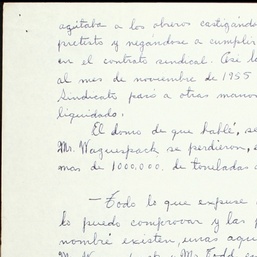 agitaba a los obreros castigándo
pretesto y negándose a cumplir
en el contrato sindical. Ose la
al mes de noviembre de 1955
Sindicato pasó a otras manos
liquidado.
El domo de que hablé, se
Mr. Waguespack se perdieron, e
mas de 1000.000. de toneladas d
— Todo lo que expuse
lo puedo comprovar y las p
nombré existen, unas aqu
Mr. Todd